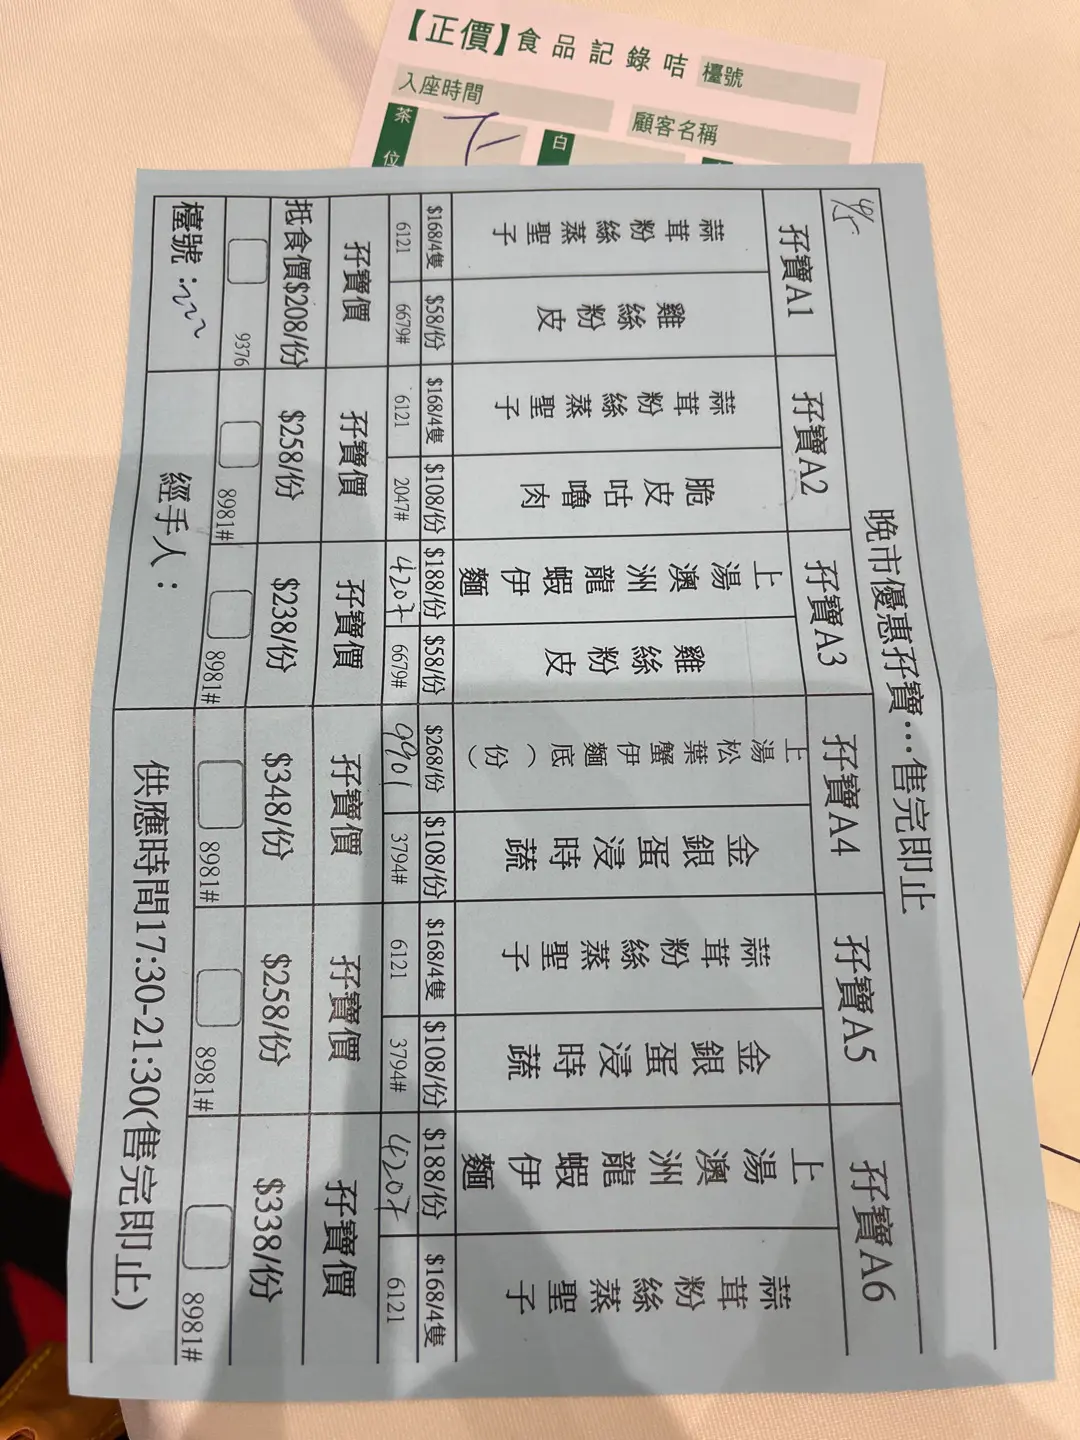 【正價】食品記錄咭 檯號
入座時間
顧客名稱
茶位
白
晚市優惠孖寶…售完即止
孖寶A1 孖寶A2 孖寶A3 孖寶A4 孖寶A5 孖寶A6
蒜茸粉絲蒸聖子
雞絲粉皮
蒜茸粉絲蒸聖子
脆皮咕嚕肉
上湯澳洲龍蝦伊麵
雞絲粉皮
上湯松葉蟹伊麵底(份)
金銀蛋浸時蔬
蒜茸粉絲蒸聖子
金銀蛋浸時蔬
上湯澳洲龍蝦伊麵
蒜茸粉絲蒸聖子
$168/4隻 $58/份 $168/4隻 $108/份 $188/份 $58/份 $268/份 $108/份 $168/4隻 $108/份 $188/份 $168/4隻
6121 6679# 6121 2047# 4207 6679# 9901 3794# 6121 3794# 4207 6121
孖寶價 孖寶價 孖寶價 孖寶價 孖寶價 孖寶價
抵食價$208/份 $258/份 $238/份 $348/份 $258/份 $338/份
9376 8981# 8981# 8981# 8981# 8981#
檯號: 經手人: 供應時間17:30-21:30(售完即止)